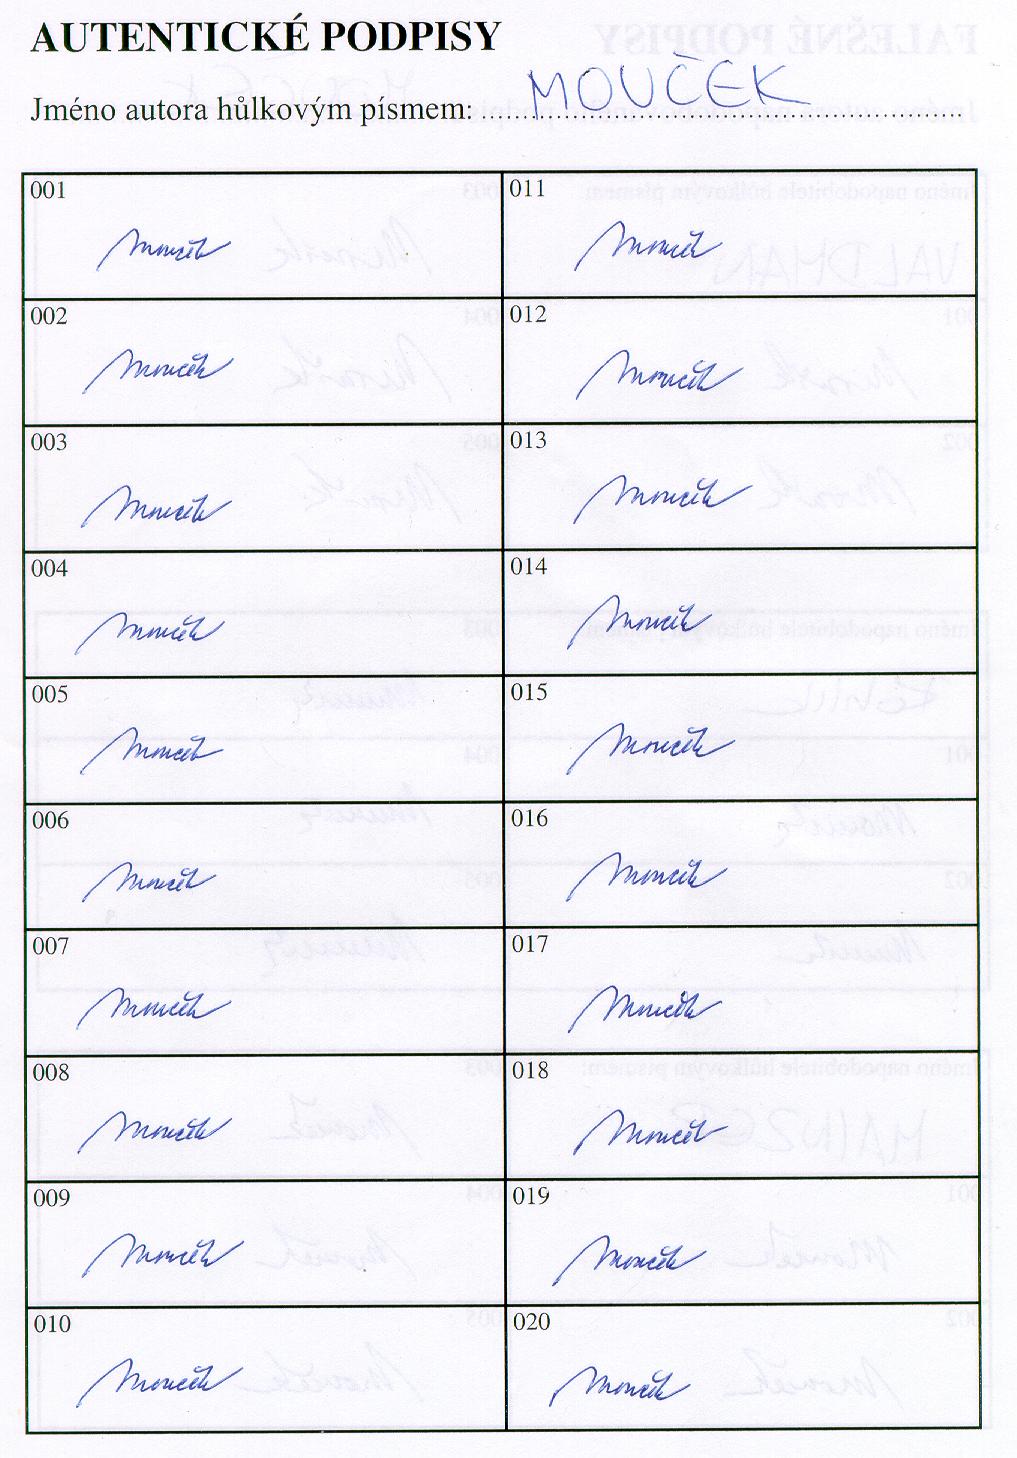 AUTENTICKÉ PODPISY
Jméno autora hůlkovým písmem: MOUČEK
001 Mouček
011 Mouček
002 Mouček
012 Mouček
003 Mouček
013 Mouček
004 Mouček
014 Mouček
005 Mouček
015 Mouček
006 Mouček
016 Mouček
007 Mouček
017 Mouček
008 Mouček
018 Mouček
009 Mouček
019 Mouček
010 Mouček
020 Mouček